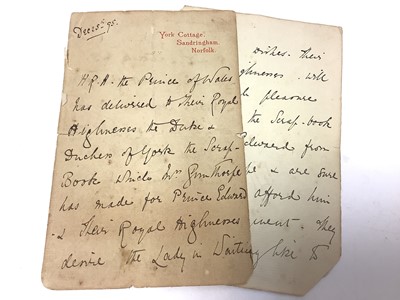 Dec 15th 95.
York Cottage,
Sandringham,
Norfolk.
H R H. the Prince of Wales
has delivered to Their Royal
Highnesses the Duke &
Duchess of York the Scrap-
Book which Mrs
has made for Prince Edward
& Their Royal Highnesses
desire the Lady in Waiting
wishes. Their
will
pleasure
the Scrap-book
Edward from
& are sure
afford him
They
like to